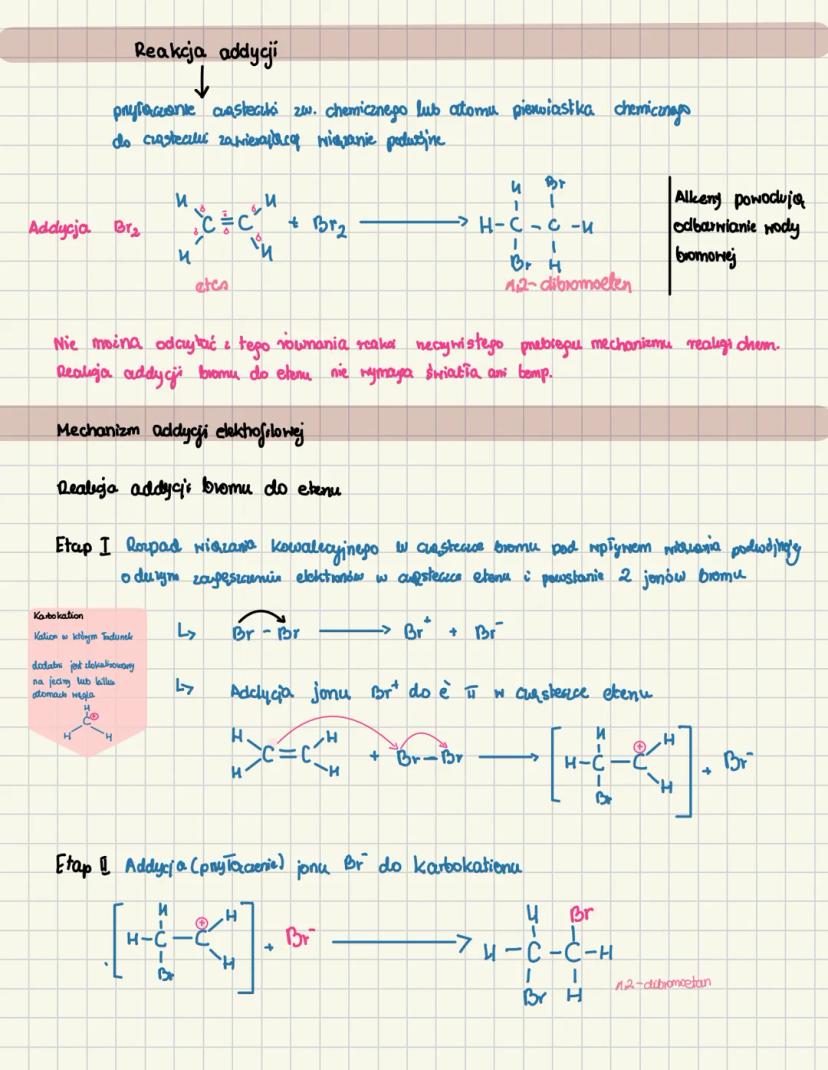 Reakcja addycji
przyłączanie cząsteczki zw. chemicznego lub atomu pierwiastka chemicznego
do cząsteczki zawierającej wiązanie podwójne
Addycja Br₂
H H C = C H H + Br₂ → H Br H-C-C-H Br H
eten
1,2-dibromoeten
Alkeny powodują
odbarwianie wody
bromowej
Nie można odczytać z tego równania reakcji rzeczywistego przebiegu mechanizmu reakcji chem.
Reakcja addycji bromu do etenu nie wymaga światła ani temp.
Mechanizm addycji elektrofilowej
Reakcja addycji bromu do etenu
Etap I Rozpad wiązania kowalecyjnego w cząsteczce bromu pod wpływem wiązania podwójnego
o dużym zagęszczeniu elektronów w cząsteczce etenu i powstanie 2 jonów bromu
Karbokation
Kation w którym ładunek
dodatni jest zlokalizowany
na jednym lub kilku
atomach węgla
H C⊕ H H
↳ Br - Br → Br⁺ + Br⁻
↳ Addycja jonu Br⁺ do e π w cząsteczce etenu
H H C=C H H + Br-Br → [H H-C-C⊕ H H Br] + Br⁻
Etap II Addycja (przyłączenie) jonu Br⁻ do karbokationu
[H H-C-C⊕ H H Br] + Br⁻ → H Br H-C-C-H Br H
1,2-dibromoetan